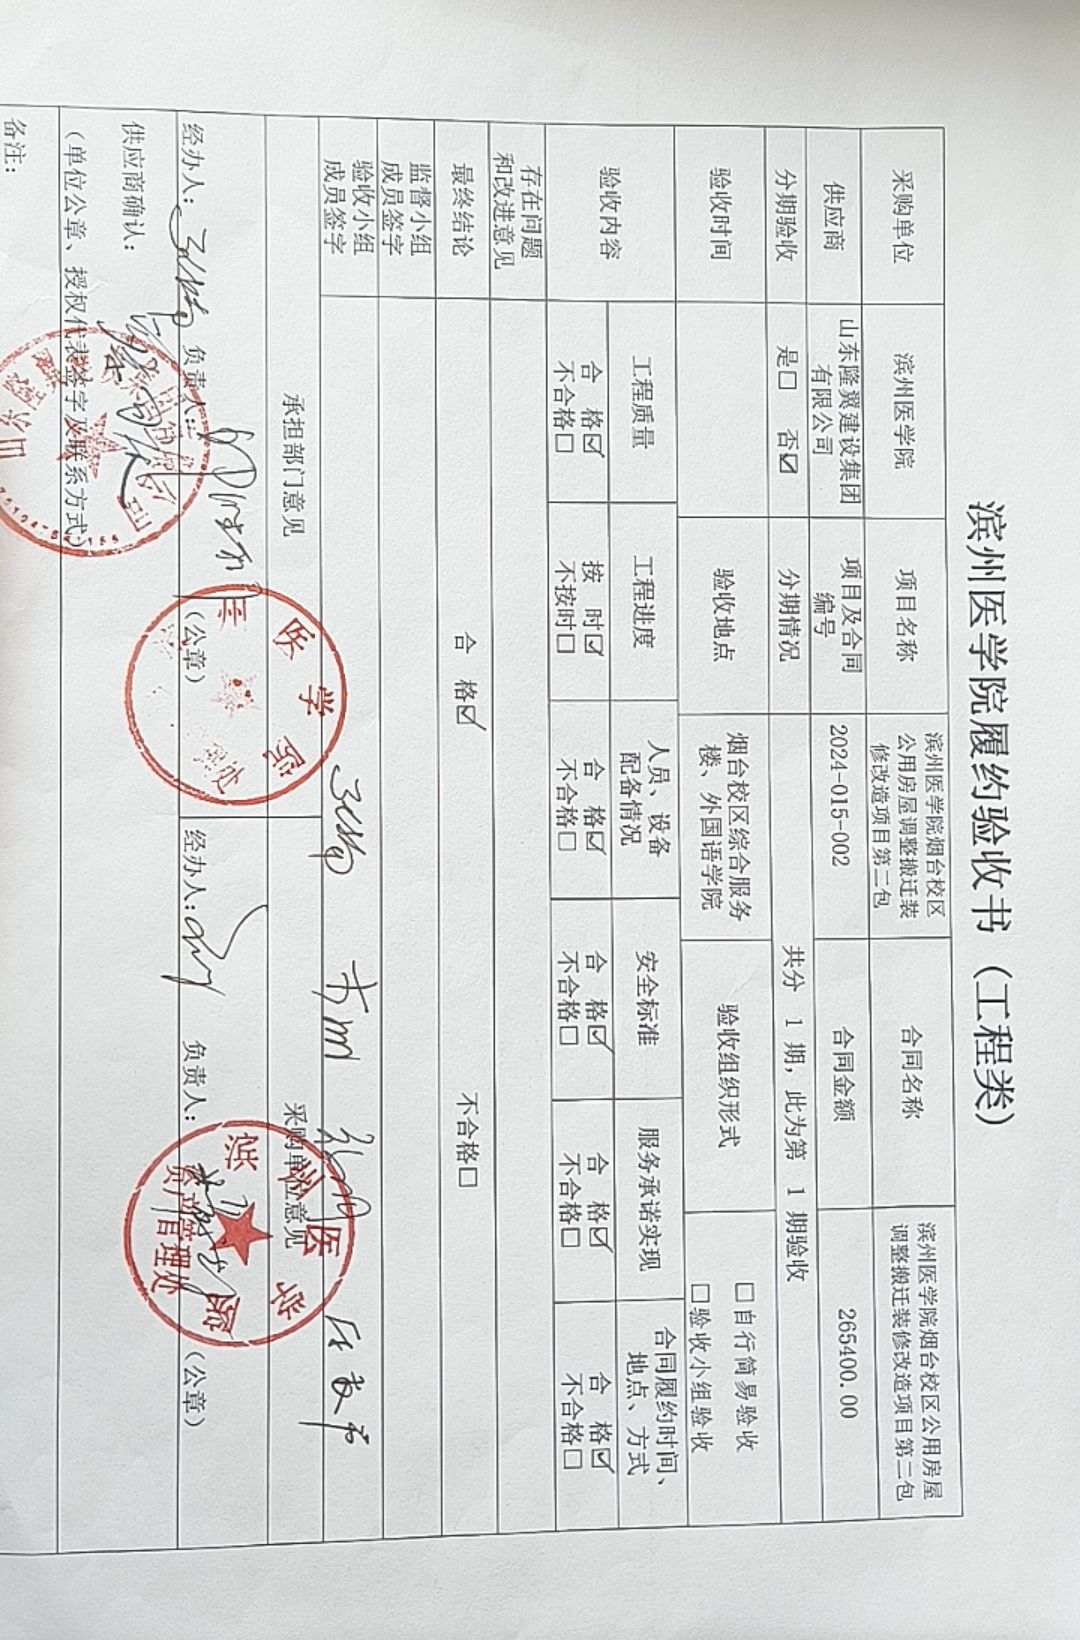 滨州医学院履约验收书（工程类）
采购单位 滨州医学院 项目名称 滨州医学院烟台校区公用房屋调整搬迁装修改造项目第二包 合同名称 滨州医学院烟台校区公用房屋调整搬迁装修改造项目第二包
供应商 山东隆翼建设集团有限公司 项目及合同编号 2024-015-002 合同金额 265400.00
分期验收 是☐ 否☑ 分期情况 共分 1 期，此为第 1 期验收
验收时间 验收地点 烟台校区综合服务楼、外国语学院 验收组织形式 ☐自行简易验收
☐验收小组验收
验收内容 工程质量 工程进度 人员、设备配备情况 安全标准 服务承诺实现 合同履约时间、地点、方式
合 格☑ 按 时☑ 合 格☑ 合 格☑ 合 格☑ 合 格☑
不合格☐ 不按时☐ 不合格☐ 不合格☐ 不合格☐ 不合格☐
存在问题和改进意见
最终结论 合 格☑ 不合格☐
监督小组成员签字
验收小组成员签字
承担部门意见 采购单位意见
经办人： 负责人： （公章） 经办人： 负责人： （公章）
医学院
滨州医学院
资产管理处
供应商确认：
（单位公章、授权代表签字及联系方式）
备注：